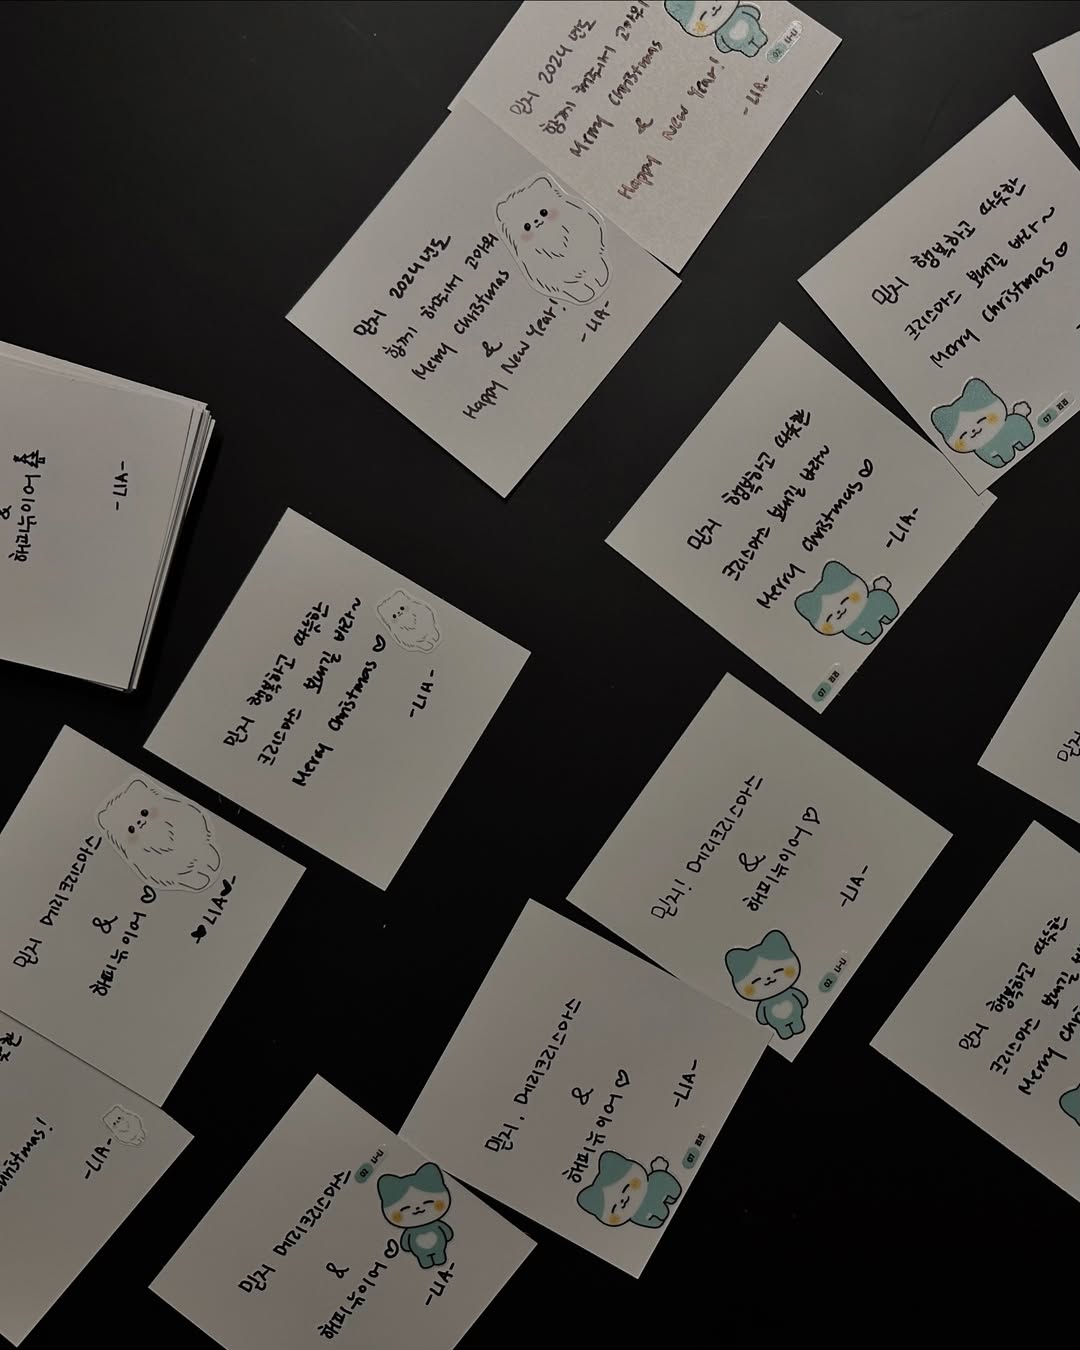 믿지 2024년도
함께 해줘서 고마워
Merry Christmas
&
Happy New Year!
-LIA-
02
믿지 2024년도
함께 해줘서 고마워
Merry Christmas
&
Happy New Year!
-LIA-
믿지 행복하고 따뜻한
크리스마스 보내길 바라~
Merry Christmas ♡
07
믿지 행복하고 따뜻한
크리스마스 보내길 바라~
Merry Christmas ♡
-LIA-
07
&
해피뉴이어
-LIA-
믿지 행복하고 따뜻한
크리스마스 보내길 바라~
Merry Christmas ♡
-LIA-
믿지! 메리크리스마스
&
해피뉴이어 ♡
-LIA-
02
믿지 메리크리스마스
&
해피뉴이어 ♡
-♥LIA♥-
믿지, 메리크리스마스
&
해피뉴이어 ♡
-LIA-
07
믿지 행복하고 따뜻한
크리스마스 보내길
Merry
믿지
christmas!
-LIA-
믿지 메리크리스마스
&
해피뉴이어 ♡
-LIA-
02